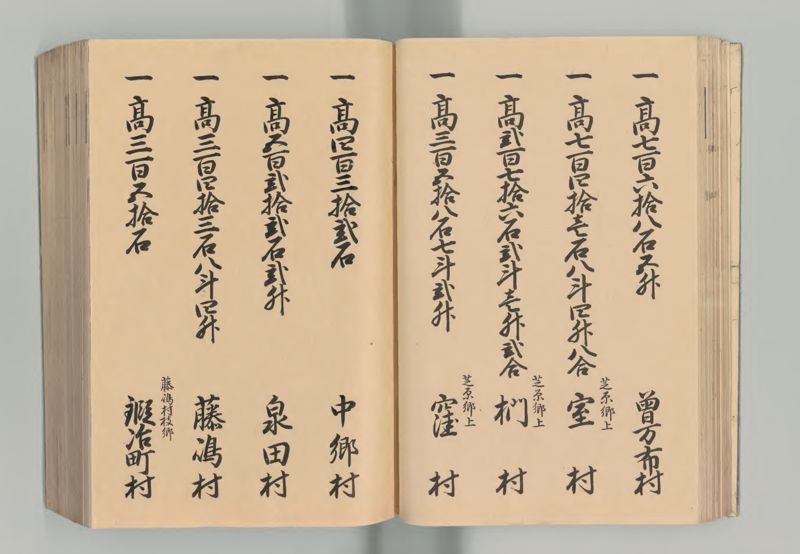 一 高七百六拾八石五升 曽万布村
一 高七百四拾壱石八斗四升八合 芝原郷上 室村
一 高弐百七拾六石弐斗壱升弐合 芝原郷上 椚村
一 高三百五拾八石七斗弐升 芝原郷上 窪村
一 高四百三拾弐石 中郷村
一 高五百弐拾弐石弐升 泉田村
一 高三百四拾三石八斗四升 藤嶋村
一 高三百五拾石 藤嶋村枝郷 鍜冶町村